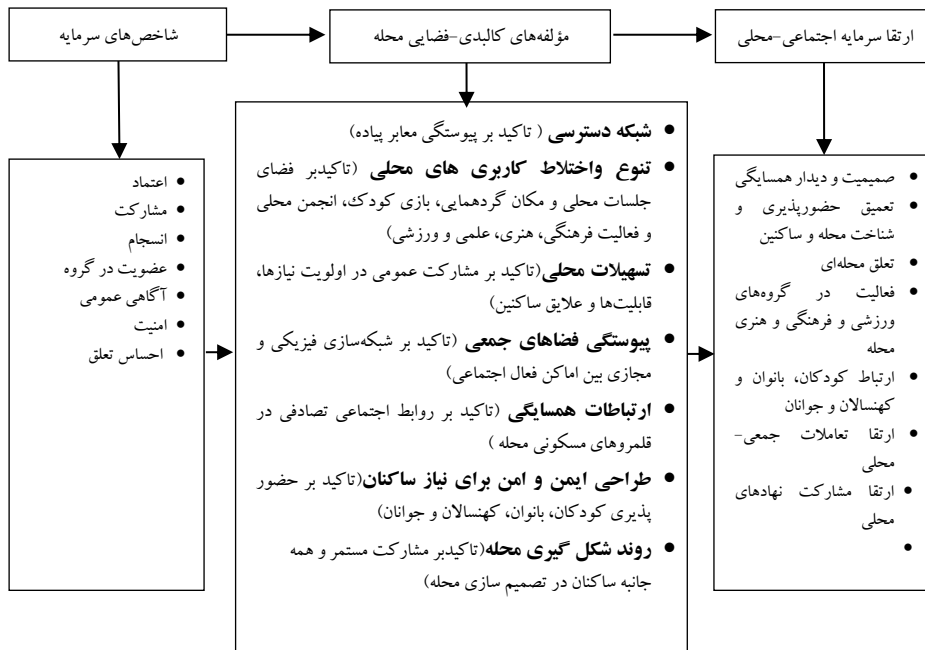 شاخص‌های سرمایه
مؤلفه‌های کالبدی-فضایی محله
ارتقا سرمایه اجتماعی-محلی
• اعتماد
• مشارکت
• انسجام
• عضویت در گروه
• آگاهی عمومی
• امنیت
• احساس تعلق
• شبکه دسترسی ( تاکید بر پیوستگی معابر پیاده)
• تنوع واختلاط کاربری های محلی (تاکیدبر فضای
جلسات محلی و مکان گردهمایی، بازی کودک، انجمن محلی
و فعالیت فرهنگی، هنری، علمی و ورزشی)
• تسهیلات محلی(تاکید بر مشارکت عمومی در اولویت نیازها،
قابلیت‌ها و علایق ساکنین)
• پیوستگی فضاهای جمعی (تاکید بر شبکه‌سازی فیزیکی و
مجازی بین اماکن فعال اجتماعی)
• ارتباطات همسایگی (تاکید بر روابط اجتماعی تصادفی در
قلمروهای مسکونی محله )
• طراحی ایمن و امن برای نیاز ساکنان(تاکید بر حضور
پذیری کودکان، بانوان، کهنسالان و جوانان)
• روند شکل گیری محله(تاکیدبر مشارکت مستمر و همه
جانبه ساکنان در تصمیم سازی محله)
• صمیمیت و دیدار همسایگی
• تعمیق حضورپذیری و
شناخت محله و ساکنین
• تعلق محله‌ای
• فعالیت در گروه‌های
ورزشی و فرهنگی و هنری
محله
• ارتباط کودکان، بانوان و
کهنسالان و جوانان
• ارتقا تعاملات جمعی-
محلی
• ارتقا مشارکت نهادهای
محلی
•